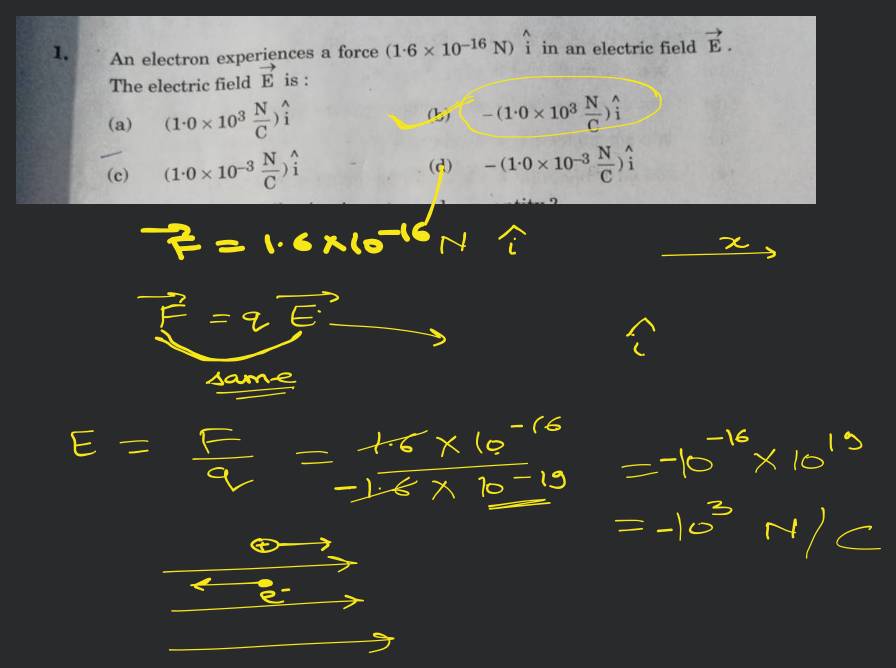 1. An electron experiences a force (1·6 × 10⁻¹⁶ N) î in an electric field E⃗ .
The electric field E⃗ is :
(a) (1·0 × 10³ N/C) î (b) – (1·0 × 10³ N/C) î
(c) (1·0 × 10⁻³ N/C) î (d) – (1·0 × 10⁻³ N/C) î
F⃗ = 1.6 × 10⁻¹⁶ N î x
F⃗ = q E⃗ î
same
E = F/q = 1.6 × 10⁻¹⁶ / -1.6 × 10⁻¹⁹ = -10⁻¹⁶ × 10¹⁹
= -10³ N/C
+
e⁻